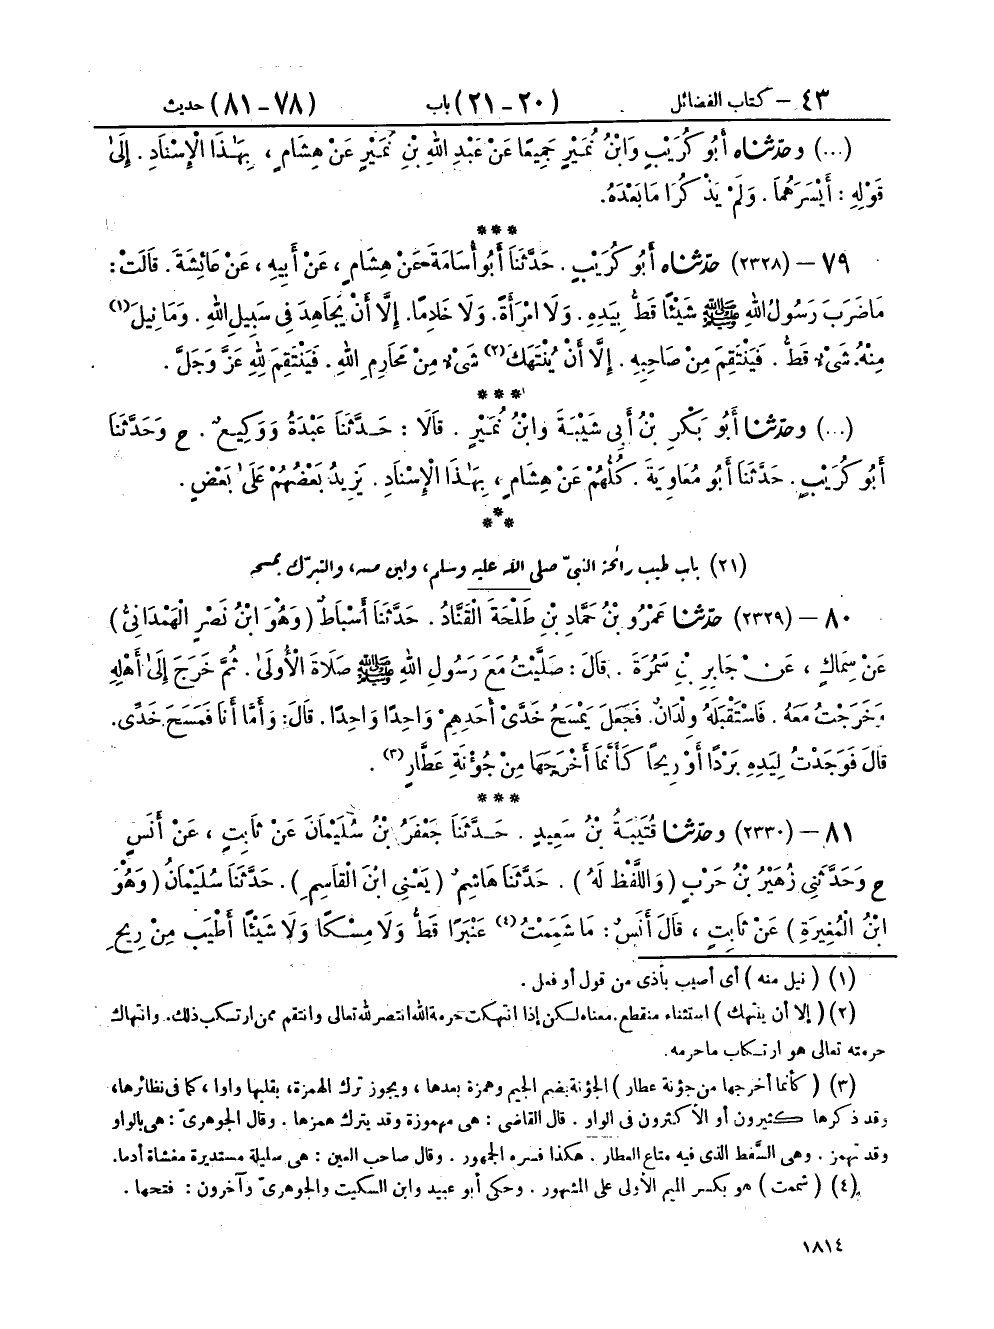 ٤٣ – كتاب الفضائل (٢٠ – ٢١) باب (٧٨ – ٨١) حديث
(...) وحدّثناه أَبُو كُرَيْبٍ وَابْنُ نُمَيْرٍ جَمِيعًا عَنْ عَبْدِ اللهِ بْنِ نُمَيْرٍ عَنْ هِشَامٍ ، بِهَٰذَا الْإِسْنَادِ . إِلَىٰ
قَوْلِهِ : أَيْسَرَهُمَا . وَلَمْ يَذْكُرَا مَا بَعْدَهُ.
***
٧٩ – (٢٣٢٨) حدّثناه أَبُو كُرَيْبٍ . حَدَّثَنَا أَبُو أُسَامَةَ عَنْ هِشَامٍ ، عَنْ أَبِيهِ ، عَنْ عَائِشَةَ . قَالَتْ :
مَا ضَرَبَ رَسُولُ اللهِ ﷺ شَيْئًا قَطُّ بِيَدِهِ . وَلَا امْرَأَةً. وَلَا خَادِمًا. إِلَّا أَنْ يُجَاهِدَ فِي سَبِيلِ اللهِ . وَمَا نِيلَ (١)
مِنْهُ شَيْءٌ قَطُّ . فَيَنْتَقِمَ مِنْ صَاحِبِهِ . إِلَّا أَنْ يُنْتَهَكَ (٢) شَيْءٌ مِنْ مَحَارِمِ اللهِ . فَيَنْتَقِمَ لِلهِ عَزَّ وَجَلَّ .
***
(...) وحدّثنا أَبُو بَكْرِ بْنُ أَبِي شَيْبَةَ وَابْنُ نُمَيْرٍ . قَالَا : حَدَّثَنَا عَبْدَةُ وَوَكِيعٌ . ح وَحَدَّثَنَا
أَبُو كُرَيْبٍ . حَدَّثَنَا أَبُو مُعَاوِيَةَ . كُلُّهُمْ عَنْ هِشَامٍ ، بِهَٰذَا الْإِسْنَادِ . يَزِيدُ بَعْضُهُمْ عَلَىٰ بَعْضٍ .
***
(٢١) باب طيب رائحة النبيّ صلى الله عليه وسلم ، ولين مسه ، والتبرّك بمسحه
٨٠ – (٢٣٢٩) حدّثنا عَمْرُو بْنُ حَمَّادِ بْنِ طَلْحَةَ الْقَنَّادُ . حَدَّثَنَا أَسْبَاطٌ (وَهُوَ ابْنُ نَصْرٍ الْهَمْدَانِيُّ)
عَنْ سِمَاكٍ ، عَنْ جَابِرِ بْنِ سَمُرَةَ . قَالَ : صَلَّيْتُ مَعَ رَسُولِ اللهِ ﷺ صَلَاةَ الْأُولَىٰ . ثُمَّ خَرَجَ إِلَىٰ أَهْلِهِ
وَخَرَجْتُ مَعَهُ . فَاسْتَقْبَلَهُ وِلْدَانٌ. فَجَعَلَ يَمْسَحُ خَدَّيْ أَحَدِهِمْ وَاحِدًا وَاحِدًا . قَالَ: وَأَمَّا أَنَا فَمَسَحَ خَدِّي.
قَالَ فَوَجَدْتُ لِيَدِهِ بَرْدًا أَوْ رِيحًا كَأَنَّمَا أَخْرَجَهَا مِنْ جُؤْنَةِ عَطَّارٍ (٣) .
***
٨١ – (٢٣٣٠) وحدّثنا قُتَيْبَةُ بْنُ سَعِيدٍ . حَدَّثَنَا جَعْفَرُ بْنُ سُلَيْمَانَ عَنْ ثَابِتٍ ، عَنْ أَنَسٍ
ح وَحَدَّثَنِي زُهَيْرُ بْنُ حَرْبٍ (وَاللَّفْظُ لَهُ) . حَدَّثَنَا هَاشِمٌ (يَعْنِي ابْنَ الْقَاسِمِ) . حَدَّثَنَا سُلَيْمَانُ (وَهُوَ
ابْنُ الْمُغِيرَةِ) عَنْ ثَابِتٍ ، قَالَ أَنَسٌ : مَا شَمِمْتُ (٤) عَنْبَرًا قَطُّ وَلَا مِسْكًا وَلَا شَيْئًا أَطْيَبَ مِنْ رِيحِ
(١) ( نيل منه ) أى أصيب بأذى من قول أو فعل .
(٢) ( إلا أن ينتهك ) استثناء منقطع . معناه لكن إذا انتهكت حرمة الله انتصر لله تعالى وانتقم ممن ارتكب ذلك. وانتهاك
حرمته تعالى هو ارتكاب ما حرمه.
(٣) ( كأنما أخرجها من جؤنة عطار ) الجؤنة بضم الجيم وهمزة بعدها ، ويجوز ترك الهمزة، بقلبها واوا ، كما فى نظائرها،
وقد ذكرها كثيرون أو الأكثرون فى الواو . قال القاضى : هى مهموزة وقد يترك همزها . وقال الجوهرىّ : هى بالواو
وقد تهمز . وهى السَّفط الذى فيه متاع العطار . هكذا فسره الجمهور . وقال صاحب العين : هى سليلة مستديرة مغشاة أدما.
(٤) ( شممت ) هو بكسر الميم الأولى على المشهور . وحكى أبو عبيد وابن السكيت والجوهرىّ وآخرون : فتحها .
١٨١٤